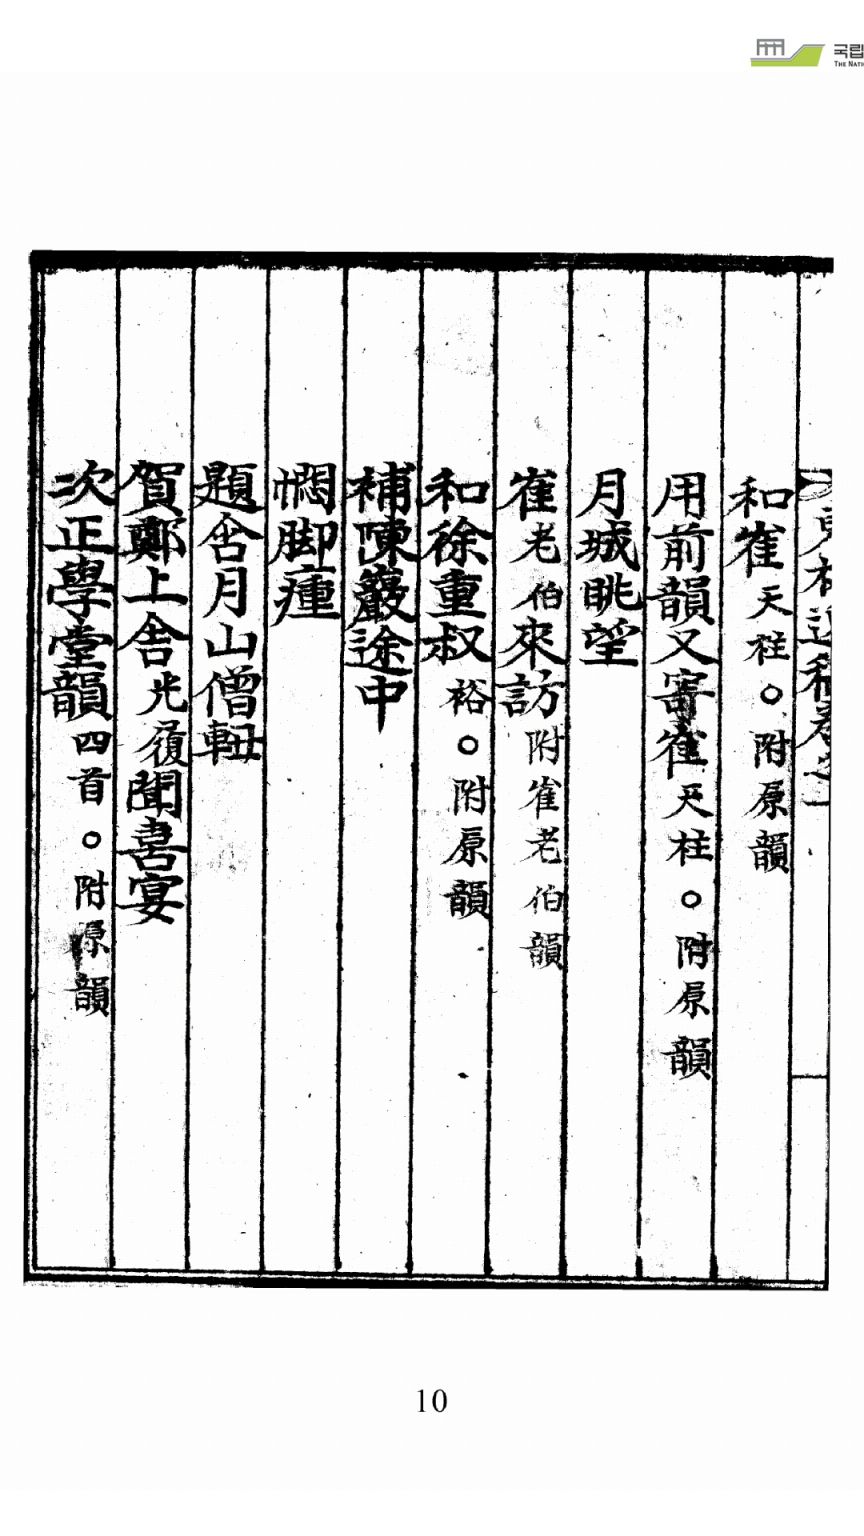 国립
THE NATI
和崔天柱○附原韻
用前韻又寄崔天柱○附原韻
月城眺望
崔老伯來訪附崔老伯韻
和徐重叔裕○附原韻
補陳巖途中
憫脚瘇
題含月山僧軸
賀鄭上舍光履聞喜宴
次正學堂韻四首○附原韻
10